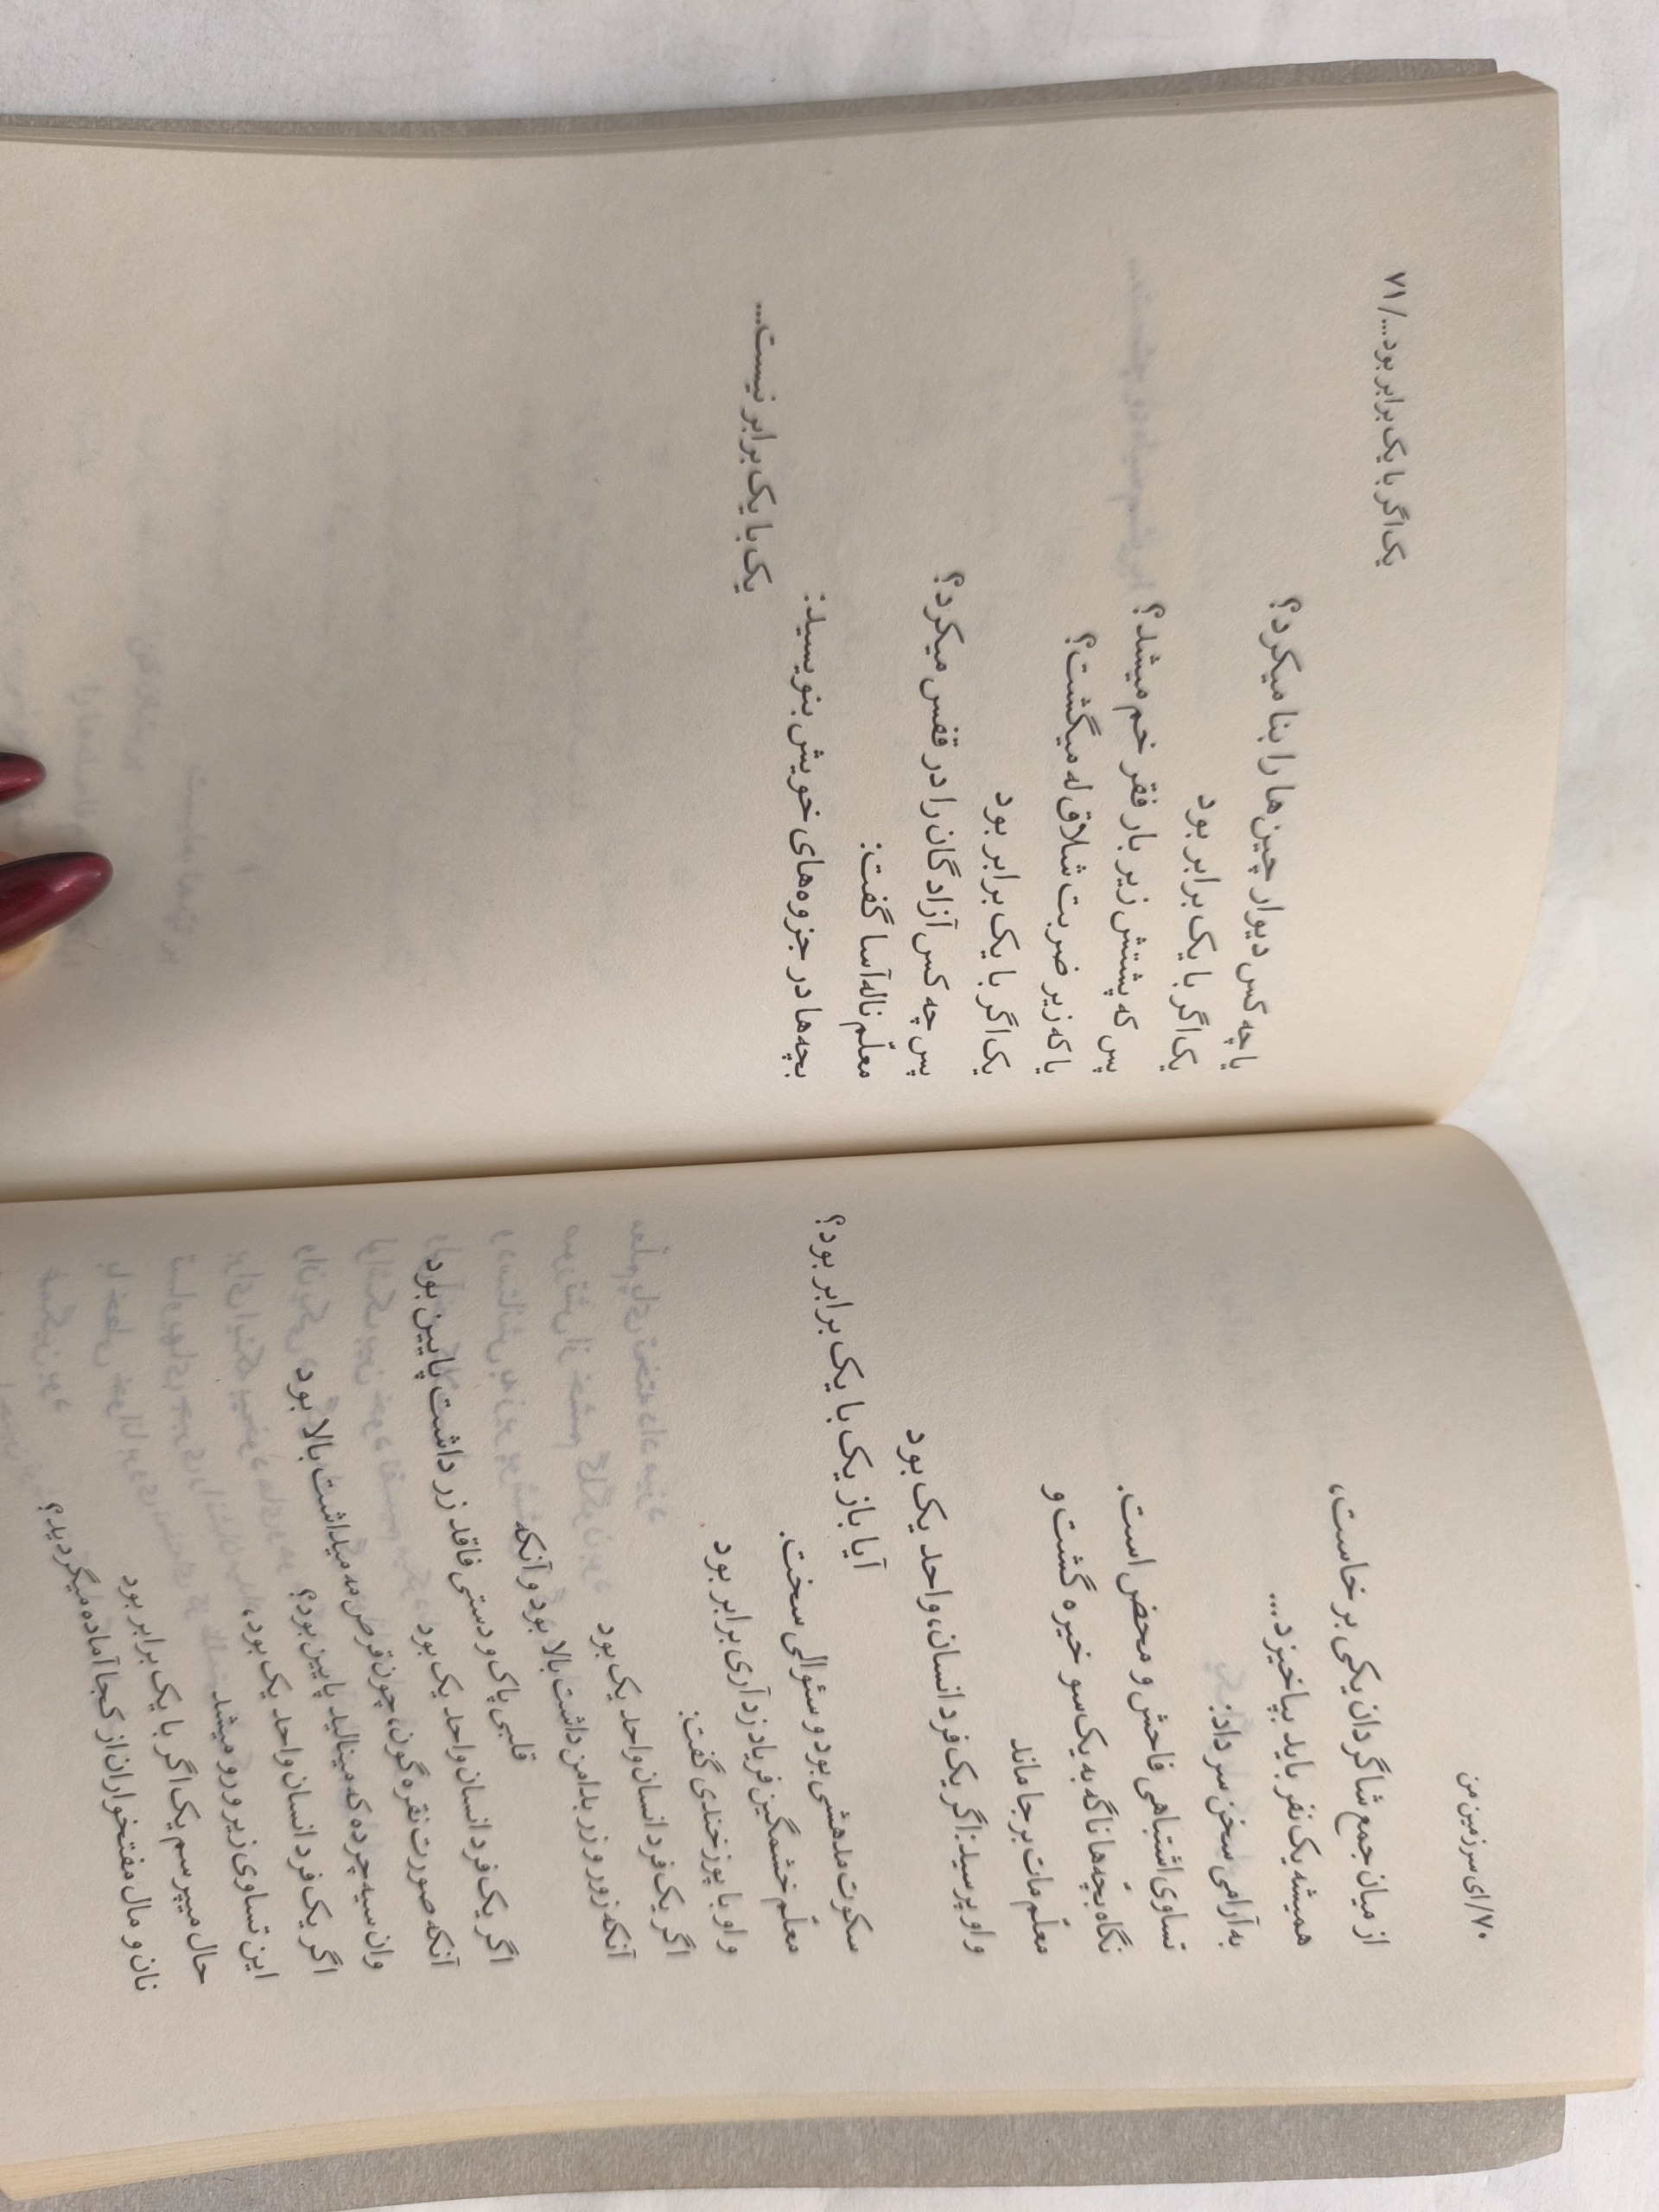 ۷۰/ای سرزمین من
از میان جمع شاگردان یکی برخاست،
همیشه یک نفر باید بپاخیزد...
به آرامی سخن سر داد:
تساوی اشتباهی فاحش و محض است.
نگاه بچّه‌ها ناگه به یک سو خیره گشت و
معلّم مات برجا ماند
و او پرسید: اگر یک فرد انسان، واحد یک بود
آیا باز یک با یک برابر بود؟
سکوت مدهشی بود و سئوالی سخت.
معلّم خشمگین فریاد زد آری برابر بود
و او با پوزخندی گفت:
اگر یک فرد انسان واحد یک بود
آنکه زور و زر بدامن داشت بالا بود و آنکه
قلبی پاک و دستی فاقد زر داشت پایین بود
اگر یک فرد انسان واحد یک بود
آنکه صورت نقره گون، چون قرص مه میداشت بالا بود
وان سیه چرده که مینالید پایین بود؟
اگر یک فرد انسان واحد یک بود،
این تساوی زیر و رو میشد
حال میپرسم یک اگر با یک برابر بود
نان و مال مفتخواران از کجا آماده میگردید؟
یک اگر با یک برابر بود.../۷۱
یا چه کس دیوار چین‌ها را بنا میکرد؟
یک اگر با یک برابر بود
پس که پشتش زیر بار فقر خم میشد؟
یا که زیر ضربت شلاق له میگشت؟
یک اگر با یک برابر بود
پس چه کس آزادگان را در قفس میکرد؟
معلّم ناله‌آسا گفت:
بچه‌ها در جزوه‌های خویش بنویسید:
یک با یک برابر نیست...